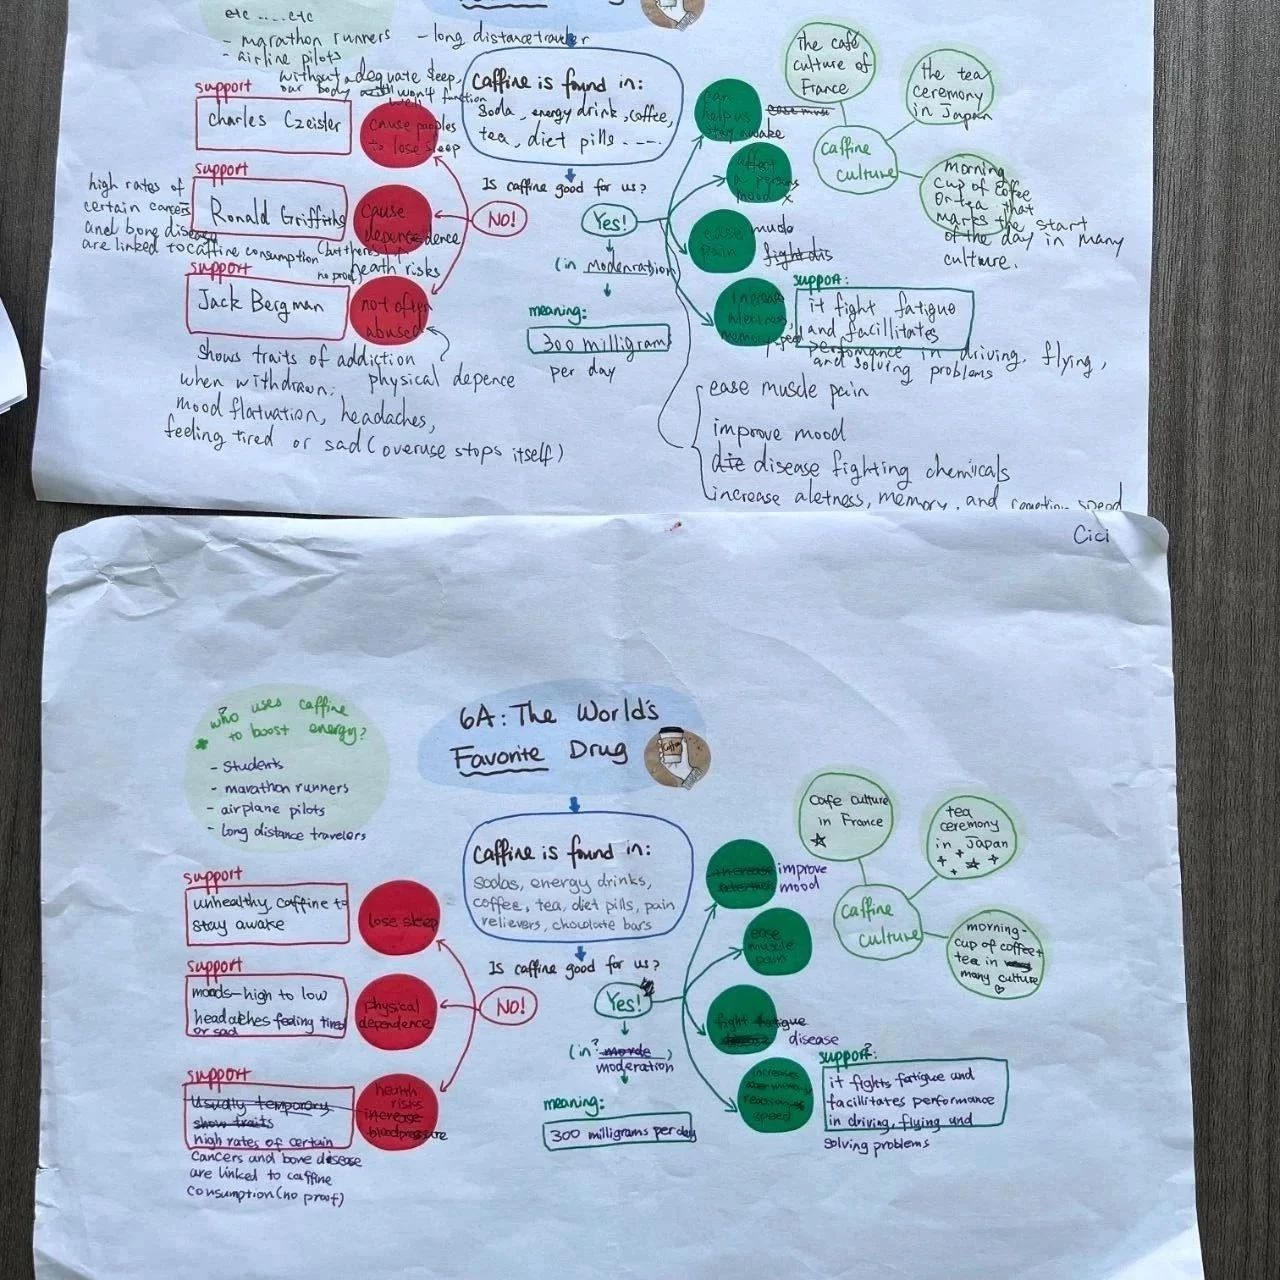 etc ..... etc
- marathon runners - long distance traveler
- airline pilots
without adequate sleep,
our body won't function
well
support
Charles Czeisler
cause peoples
to lose sleep
support
high rates of
certain cancers
and bone disease
are linked to caffine consumption (but there's
no proof)
Ronald Griffiths
cause
dependence
heath risks
support
Jack Bergman
not often
abused
shows traits of addiction
when withdrawn: physical depence
mood flatuation, headaches,
feeling tired or sad (overuse stops itself)
caffine is found in:
soda, energy drink, coffee,
tea, diet pills ....
Is caffine good for us?
NO!
Yes!
(in moderation)
meaning:
300 milligram
per day
can
help us
stay awake
affect
a persons
mood x
ease
pain
fight dis
increase
alertness,
memory,
support:
it fight fatigue
and facillitates
perfomance in driving, flying,
and solving problems
ease muscle pain
improve mood
die disease fighting chemicals
increase aletness, memory, and reaction speed
the café
culture of
France
the tea
ceremony
in Japan
caffine
culture
morning
cup of coffee
or tea that
marks the start
of the day in many
culture.
Cici
6A: The World's
Favorite Drug
Who uses caffine
to boost energy?
- Students
- marathon runners
- airplane pilots
- long distance travelers
caffine is found in:
sodas, energy drinks,
coffee, tea, diet pills, pain
relievers, chocolate bars
Is caffine good for us?
NO!
Yes!
support
unhealthy, caffine to
stay awake
lose sleep
support
moods-high to low
headaches feeling tired
or sad
physical
dependence
support
Usually temporary
show traits
high rates of certain
cancers and bone disease
are linked to caffine
consumption (no proof)
health
risks
increase
blood pressure
(in? morde)
moderation
meaning:
300 milligrams per day
improve
mood
ease
muscle
pain
fight fatigue
disease
increases
reaction
speed
support?:
it fights fatigue and
facilitates performance
in driving, flying and
solving problems
cafe culture
in France
tea
ceremony
in Japan
caffine
culture
morning-
cup of coffee+
tea in
many culture